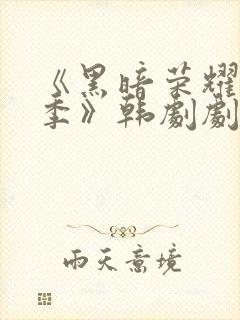 《黑暗荣耀
季》韩剧剧
雨天意境